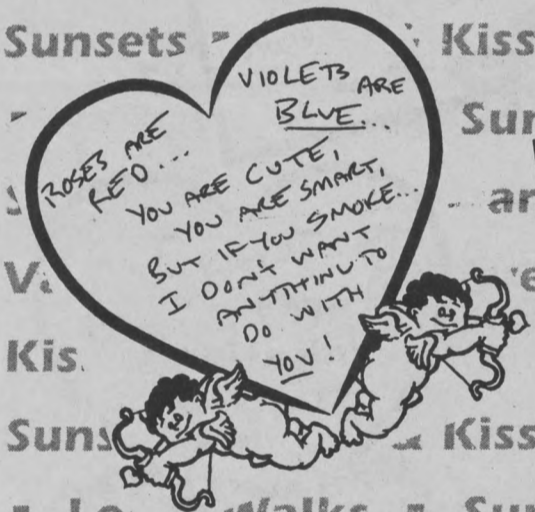 Sunsets
& Kiss
Sun
ROSES ARE
RED...
VIOLETS ARE
BLUE...
YOU ARE CUTE,
YOU ARE SMART,
BUT IF YOU SMOKE...
I DON'T WANT
ANYTHING TO
DO WITH
YOU!
Kis
Suns
& Kiss
Walks